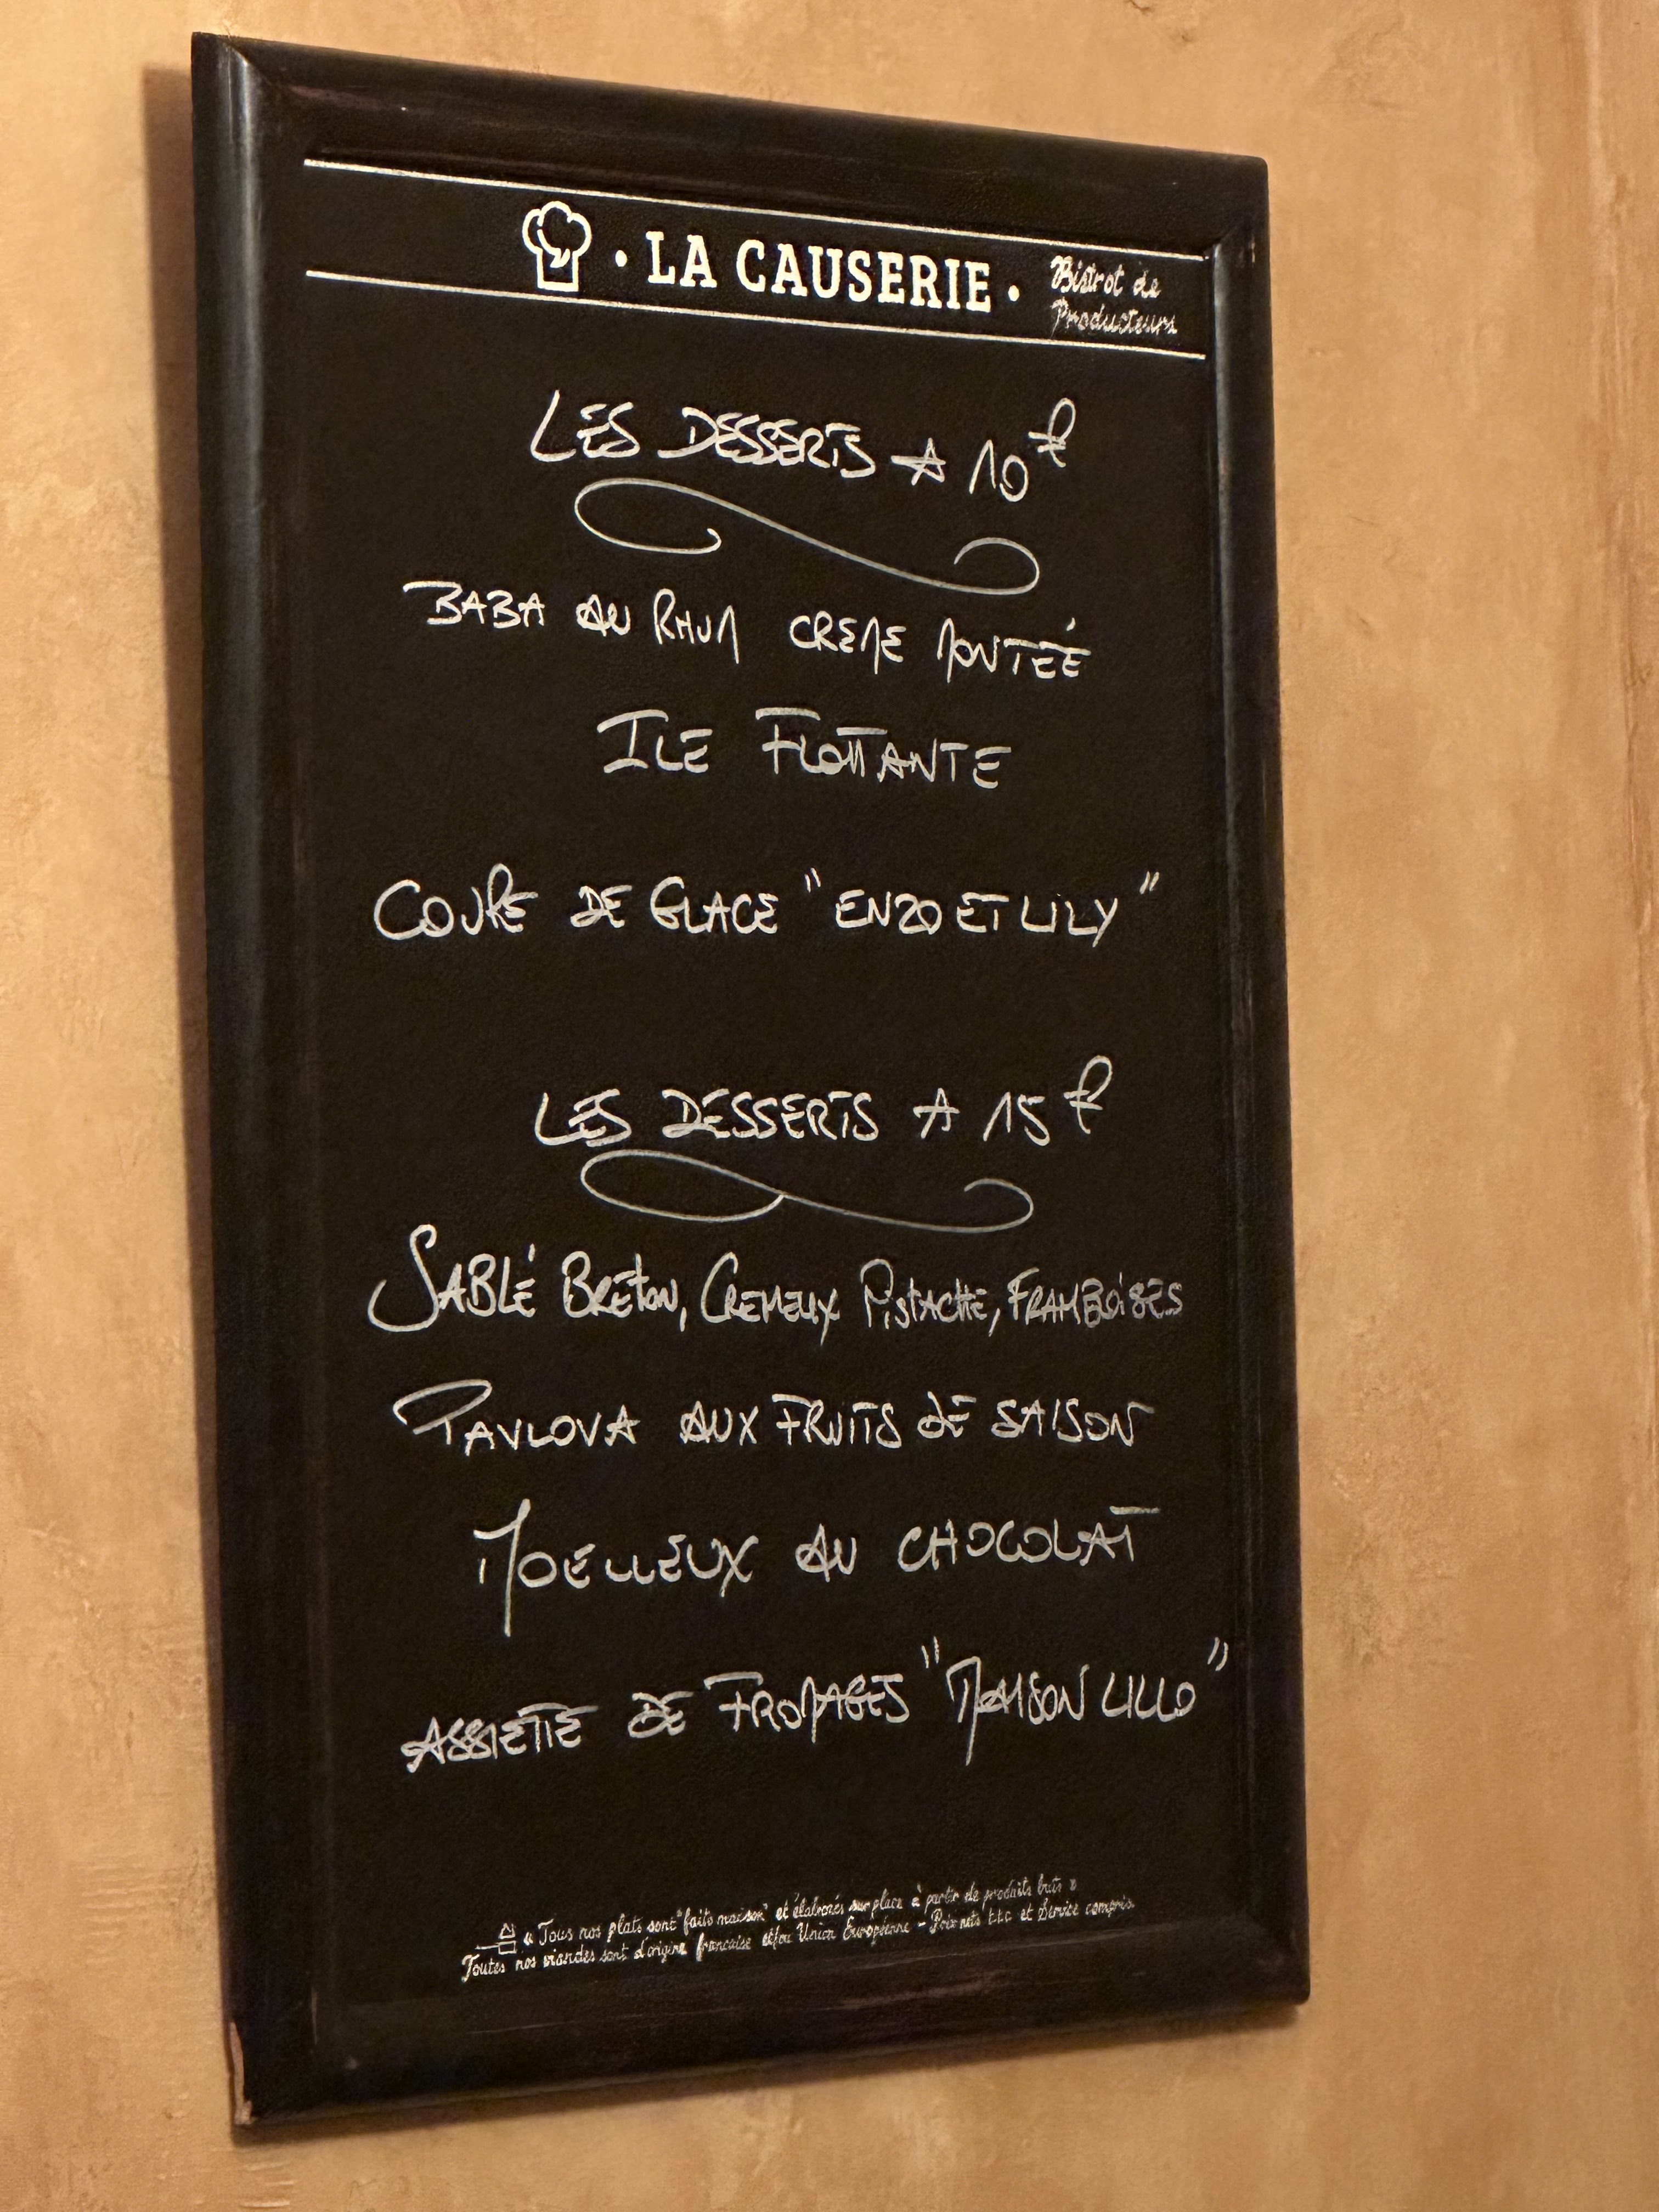 · LA CAUSERIE ·
Bistrot de
Producteurs
LES DESSERTS A 10€
BABA AU RHUM CREME MONTÉE
ILE FLOTTANTE
COUPE DE GLACE "ENZO ET LILY"
LES DESSERTS A 15€
SABLÉ BRETON, CREMEUX PISTACHE, FRAMBOISES
PAVLOVA AUX FRUITS DE SAISON
MOELLEUX AU CHOCOLAT
ASSIETTE DE FROMAGES "MAISON LILLO"
« Tous nos plats sont "faits maison" et élaborés sur place à partir de produits bruts »
Toutes nos viandes sont d'origine française et/ou Union Européenne - Prix nets t.t.c et Service compris.